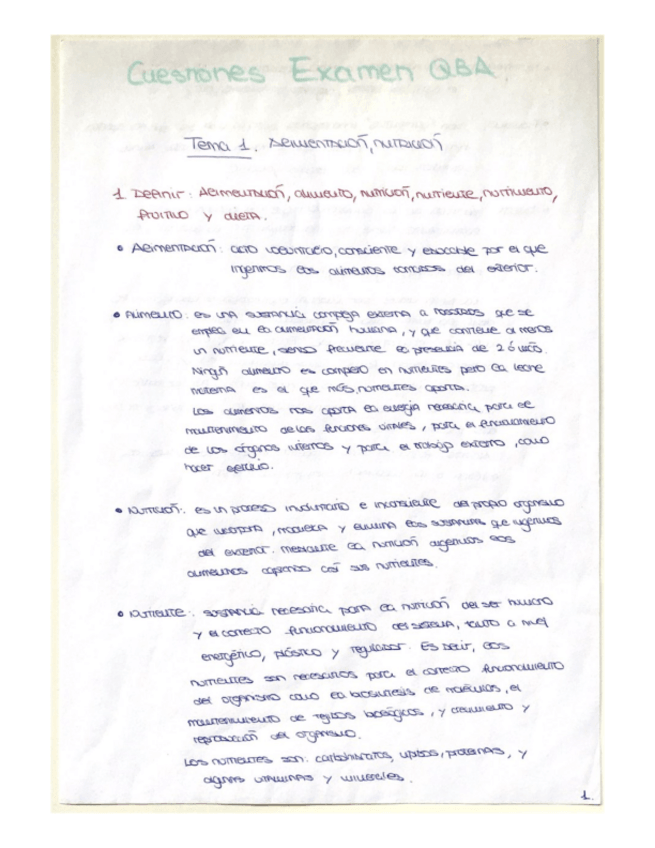 Cuestiones Examen QBA
Tema 1. Alimentación, nutrición
1. Definir: Alimentación, alimento, nutrición, nutriente, nutrimento,
prolitivo y dieta.
• Alimentación: acto voluntario, consciente y educable por el que
ingerimos los alimentos tomados del exterior.
• Alimento: es una sustancia compleja externa a nosotros que se
emplea en la alimentación humana, y que contiene al menos
un nutriente, siendo frecuente la presencia de 2 ó más.
Ningún alimento es completo en nutrientes pero la leche
materna es el que más nutrientes aporta.
Los alimentos nos aporta la energía necesaria para el
mantenimiento de las funciones vitales, para el funcionamiento
de los órganos internos y para el trabajo externo, como
hacer ejercicio.
• Nutrición: es un proceso involuntario e inconsciente del propio organismo
que incorpora, modifica y elimina las sustancias que ingerimos
del exterior. Mediante la nutrición digerimos los
alimentos captando así sus nutrientes.
• Nutriente: sustancia necesaria para la nutrición del ser humano
y el correcto funcionamiento del sistema, tanto a nivel
energético, plástico y regulador. Es decir, los
nutrientes son necesarios para el correcto funcionamiento
del organismo como la biosíntesis de moléculas, el
mantenimiento de tejidos biológicos, y crecimiento y
reproducción del organismo.
Los nutrientes son: carbohidratos, lípidos, proteínas, y
algunas vitaminas y minerales.
1.